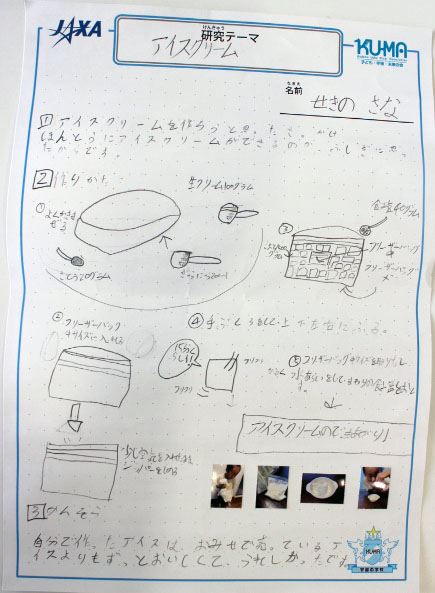 JAXA
けんきゅう
研究テーマ
アイスクリーム
KUMA
なまえ
名前
せきの さな
1 アイスクリームを作ろうと思ったきっかけ
ほんとうにアイスクリームができるのが、ふしぎに思っ
たからです。
2 作りかた
生クリーム100グラム
① よくかきま
ぜる
さとう20グラム
③
食塩40グラム
フリーザーバッグ
中
フリーザーバッグ
② フリーザーバッグ
中サイズに入れる
④ 手ぶくろをして上下左右にふる。
15分くらいふる!
フリフリ
フリフリ
⑤ フリーザーバッグ中サイズを取りだし
かるく水あらいをして、まわりの食塩をおと
す。
アイスクリームのできあがり!
少し空気を入れせまま
ジッパーをしめる
3 かんそう
自分で作ったアイスは、おみせで売っているアイ
スよりもずっとおいしくて、うれしかったです。
KUMA
宇宙の学校